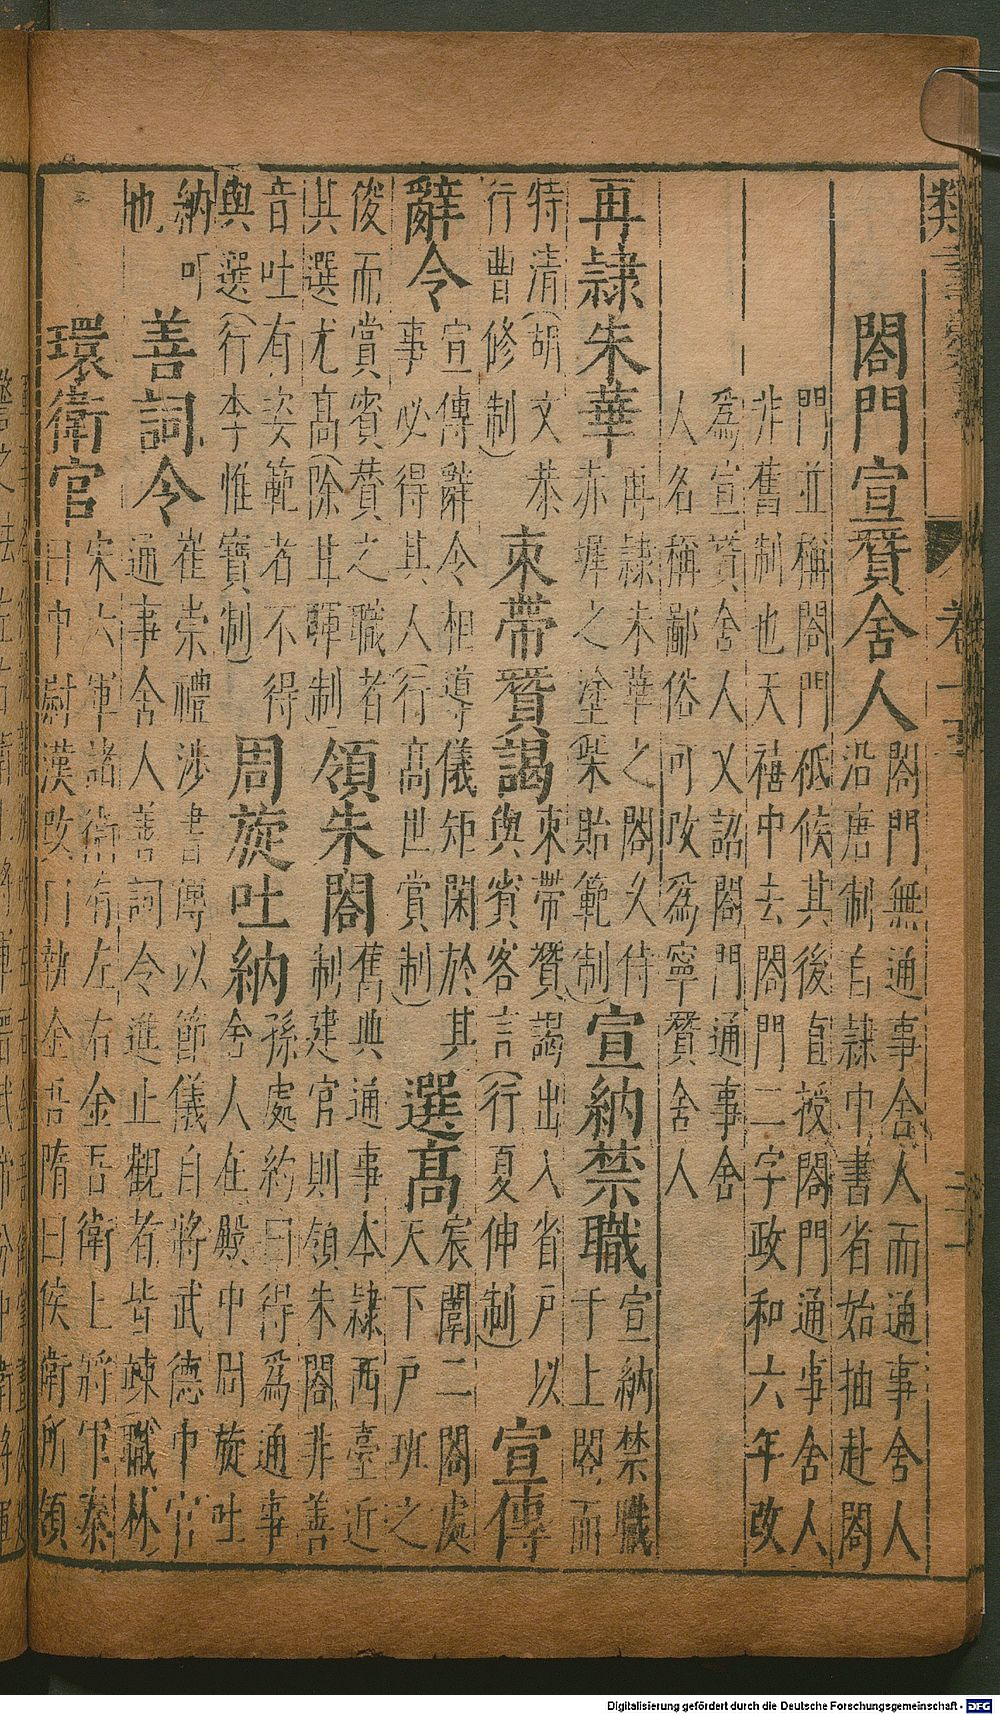 類 卷一
閤門宣贊舍人
閤門無通事舍人而通事舍人
沿唐制自隷中書省始抽赴閤
門並稱閤門祗候其後直授閤門通事舍人
非舊制也天禧中去閤門二字政和六年改
為宣贊舍人又詔閤門通事舍
人名稱鄙俗可改為寧贊舍人
再隷朱華
再隷朱華之閤久侍
赤墀之塗柴貽範制)
宣納禁職
宣納禁職
于上閤而
特清(胡文恭
行曹修制)
束帶贊謁
束帶贊謁出入省戶以
與賓客言(行夏伸制)
宣傳
辭令
宣傳辭令相導儀矩閑於其
事必得其人(行高世賞制)
選高
宸闈二閤處
天下戶班之
俊而賞賓贊之職者
其選尤高(除 暉制)
領朱閤
舊典通事本隷西臺近
制建官則領朱閤非善
音吐有姿範者不得
與選(行李惟寶制)
周旋吐納
孫處約曰得為通事
舍人在殿中周旋吐
納可
也
善詞令
崔崇禮涉書傳以節儀自將武德中官
通事舍人善詞令進止觀者皆竦職林
環衛官
宋六軍諸衛有左右金吾衛上將軍秦
曰中尉漢改曰執金吾隋曰侯衛所領
Digitalisierung gefördert durch die Deutsche Forschungsgemeinschaft - DFG